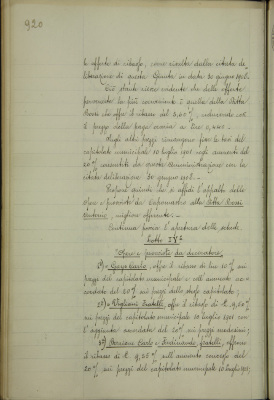 920
le offerte di ribasso, come risulta dalla citata de-
liberazione di questa Giunta in data 30 giugno 1908.
Ciò stante riesce evidente che delle offerte
presentate la più conveniente è quella della Ditta
Rossi che offre il ribasso del 2,60%, riducendo così
il prezzo della paga oraria a Lire 0,
Negli altri prezzi rimangono fisse le voci del
capitolato municipale 10 luglio 1901 cogli aumenti del
20% consentiti da questa Amministrazione con la
citata deliberazione 30 giugno 1908.
Propone quindi che si affidi l'appalto delle
Opere e provviste da Capomastro alla Ditta Rossi
migliore offerente.
Continua poscia l'apertura delle schede.
Lotto IV°
Opere e provviste da decoratore.
1°) Carlo, offre il ribasso di lire 10% sui
prezzi del capitolato municipale e sull'aumento ac-
cordato del 20% sui prezzi dello stesso capitolato;
2°) Fratelli, offre il ribasso di £. 9,50%
sui prezzi del capitolato municipale 10 luglio 1901 con
l'aggiunta accordata del 20% sui prezzi medesimi;
3°) Carlo e Ferdinando fratelli, offrono
il ribasso di £. 9,25% sull'aumento concesso del
20% sui prezzi del capitolato municipale 10 luglio 1901;